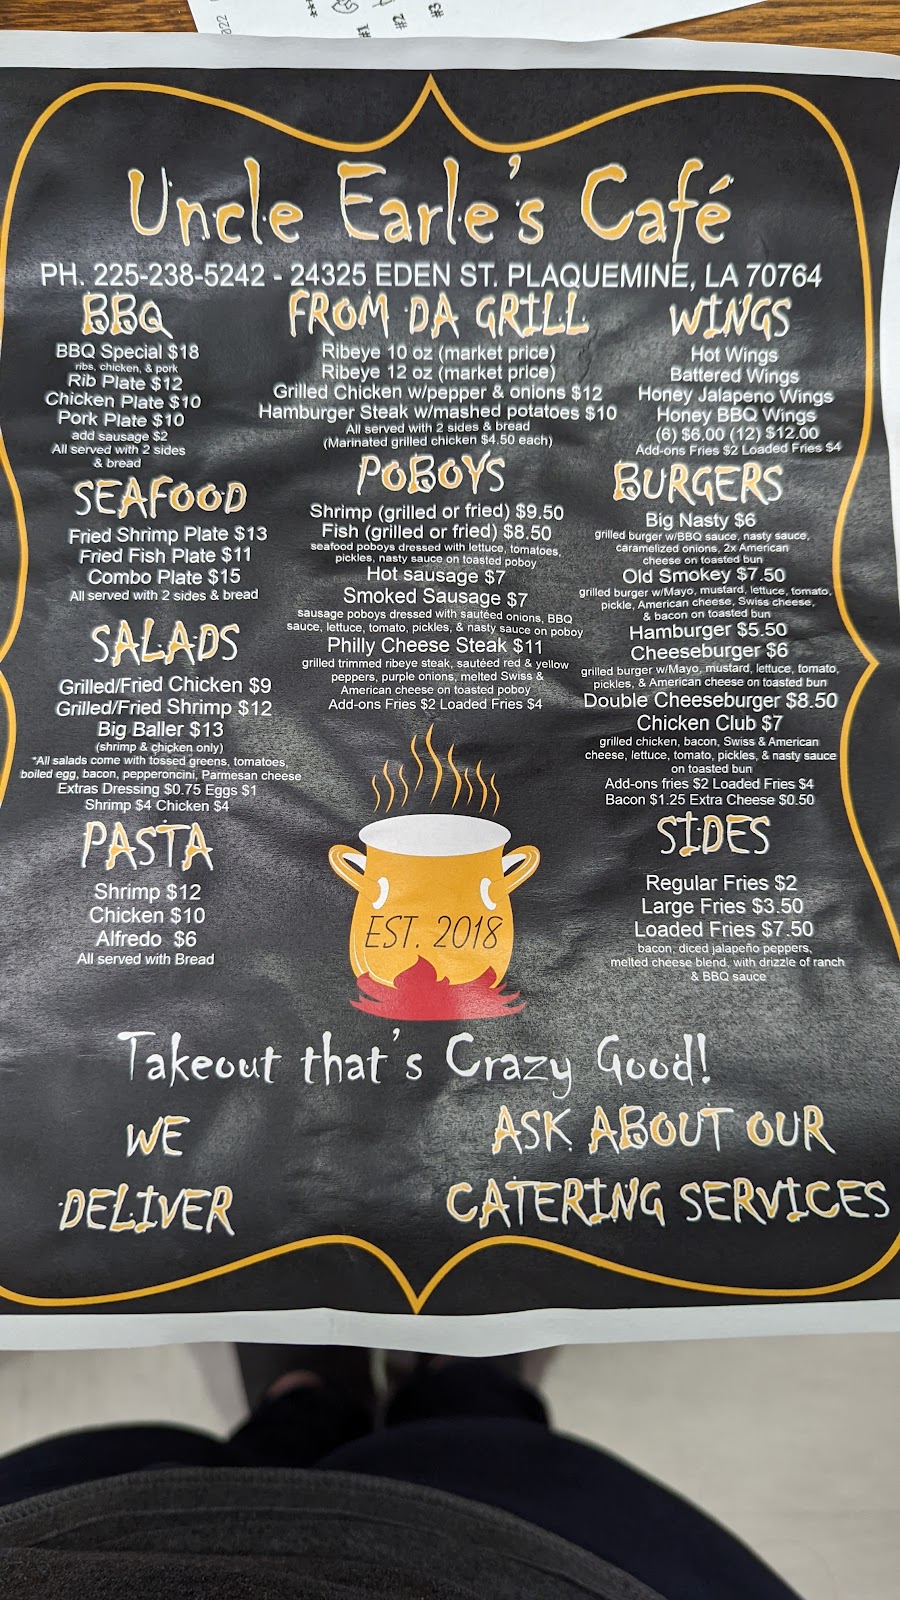 022
***
#1
#2
#3
Uncle Earle's Café
PH. 225-238-5242 - 24325 EDEN ST. PLAQUEMINE, LA 70764
BBQ
BBQ Special $18
ribs, chicken, & pork
Rib Plate $12
Chicken Plate $10
Pork Plate $10
add sausage $2
All served with 2 sides
& bread
SEAFOOD
Fried Shrimp Plate $13
Fried Fish Plate $11
Combo Plate $15
All served with 2 sides & bread
SALADS
Grilled/Fried Chicken $9
Grilled/Fried Shrimp $12
Big Baller $13
(shrimp & chicken only)
*All salads come with tossed greens, tomatoes,
boiled egg, bacon, pepperoncini, Parmesan cheese
Extras Dressing $0.75 Eggs $1
Shrimp $4 Chicken $4
PASTA
Shrimp $12
Chicken $10
Alfredo $6
All served with Bread
FROM DA GRILL
Ribeye 10 oz (market price)
Ribeye 12 oz (market price)
Grilled Chicken w/pepper & onions $12
Hamburger Steak w/mashed potatoes $10
All served with 2 sides & bread
(Marinated grilled chicken $4.50 each)
POBOYS
Shrimp (grilled or fried) $9.50
Fish (grilled or fried) $8.50
seafood poboys dressed with lettuce, tomatoes,
pickles, nasty sauce on toasted poboy
Hot sausage $7
Smoked Sausage $7
sausage poboys dressed with sautéed onions, BBQ
sauce, lettuce, tomato, pickles, & nasty sauce on poboy
Philly Cheese Steak $11
grilled trimmed ribeye steak, sautéed red & yellow
peppers, purple onions, melted Swiss &
American cheese on toasted poboy
Add-ons Fries $2 Loaded Fries $4
EST. 2018
WINGS
Hot Wings
Battered Wings
Honey Jalapeno Wings
Honey BBQ Wings
(6) $6.00 (12) $12.00
Add-ons Fries $2 Loaded Fries $4
BURGERS
Big Nasty $6
grilled burger w/BBQ sauce, nasty sauce,
caramelized onions, 2x American
cheese on toasted bun
Old Smokey $7.50
grilled burger w/Mayo, mustard, lettuce, tomato,
pickle, American cheese, Swiss cheese,
& bacon on toasted bun
Hamburger $5.50
Cheeseburger $6
grilled burger w/Mayo, mustard, lettuce, tomato,
pickles, & American cheese on toasted bun
Double Cheeseburger $8.50
Chicken Club $7
grilled chicken, bacon, Swiss & American
cheese, lettuce, tomato, pickles, & nasty sauce
on toasted bun
Add-ons fries $2 Loaded Fries $4
Bacon $1.25 Extra Cheese $0.50
SIDES
Regular Fries $2
Large Fries $3.50
Loaded Fries $7.50
bacon, diced jalapeño peppers,
melted cheese blend, with drizzle of ranch
& BBQ sauce
Takeout that's Crazy Good!
WE
DELIVER
ASK ABOUT OUR
CATERING SERVICES